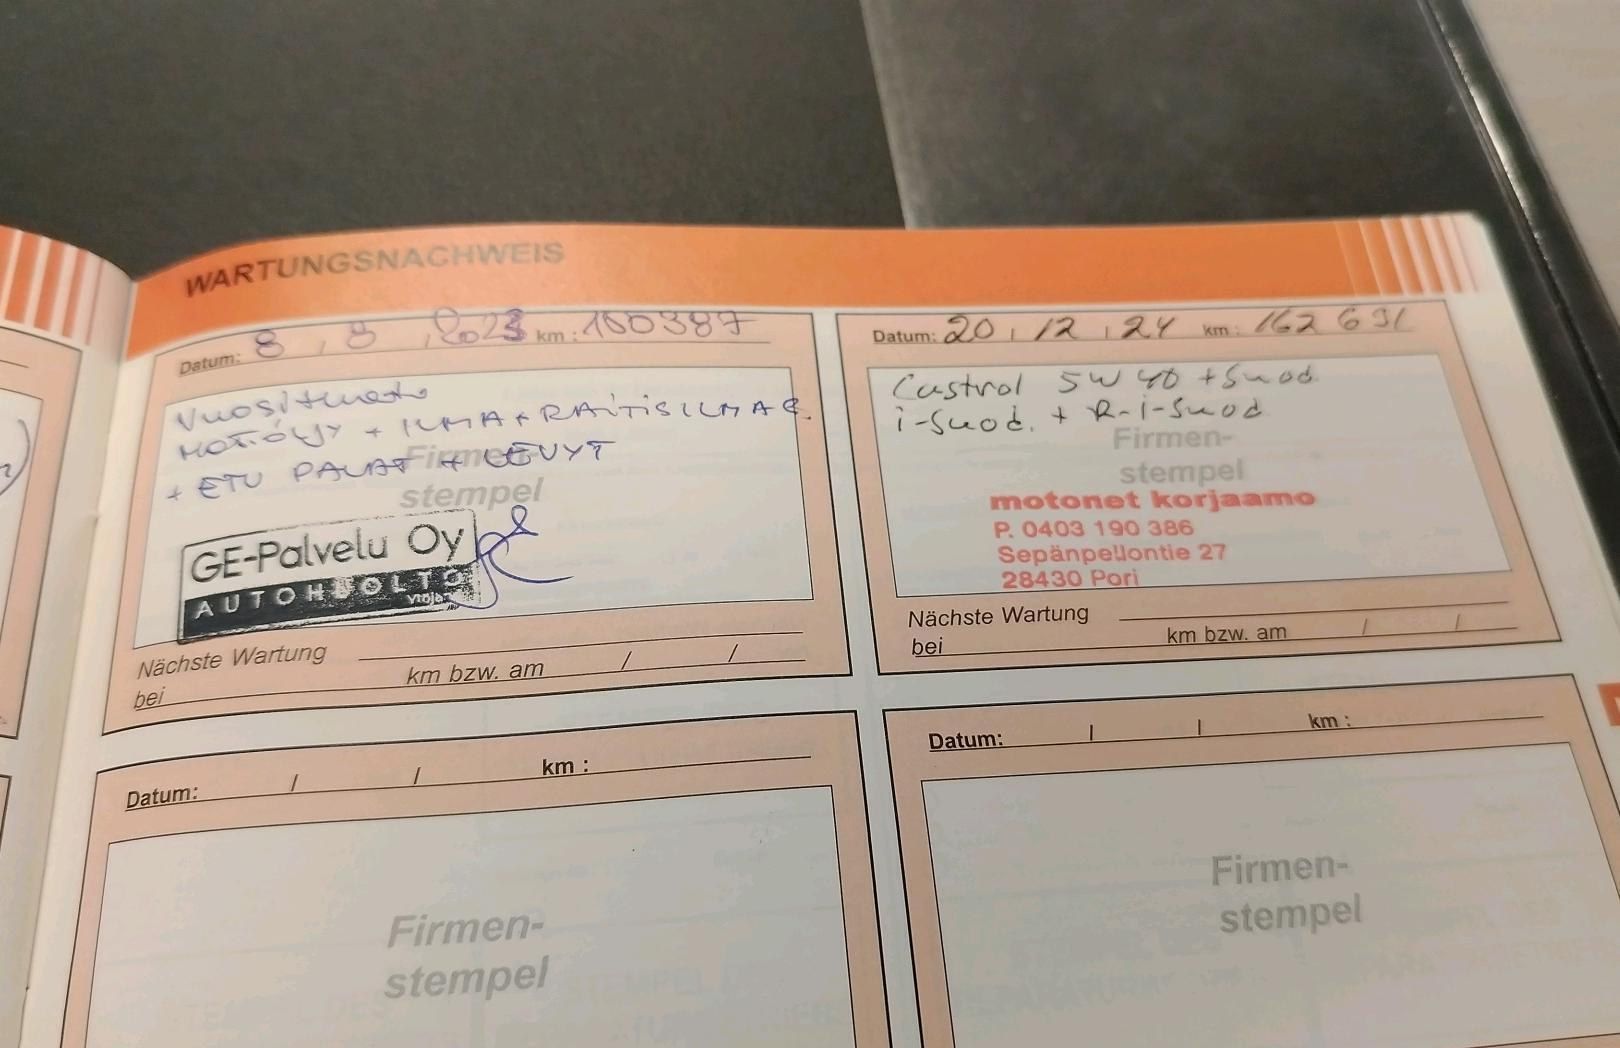 WARTUNGSNACHWEIS
Datum: 8 , 8 , 2023 km : 160387
Vuosihuolto
MOT.ÖLJY + ILMA + RAITISILMA S.
+ ETU PALAT + LEVYT
Firmen-
stempel
GE-Palvelu Oy
AUTOHUOLTO
Nächste Wartung
bei km bzw. am / /
Datum: 20 , 12 , 24 km : 162 691
Castrol 5W40 + Suod.
i-Suod. + R-i-Suod
Firmen-
stempel
motonet korjaamo
P. 0403 190 386
Sepänpellontie 27
28430 Pori
Nächste Wartung
bei km bzw. am / /
Datum: / / km :
Firmen-
stempel
Datum: / / km :
Firmen-
stempel